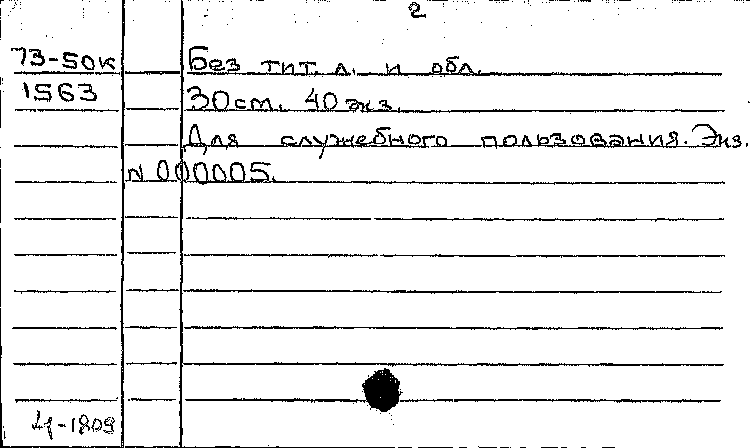 2
73-50к Без тит. л. и обл.
1563 30см. 40 экз.
Для служебного пользования. Экз.
N 000005.
4-1809